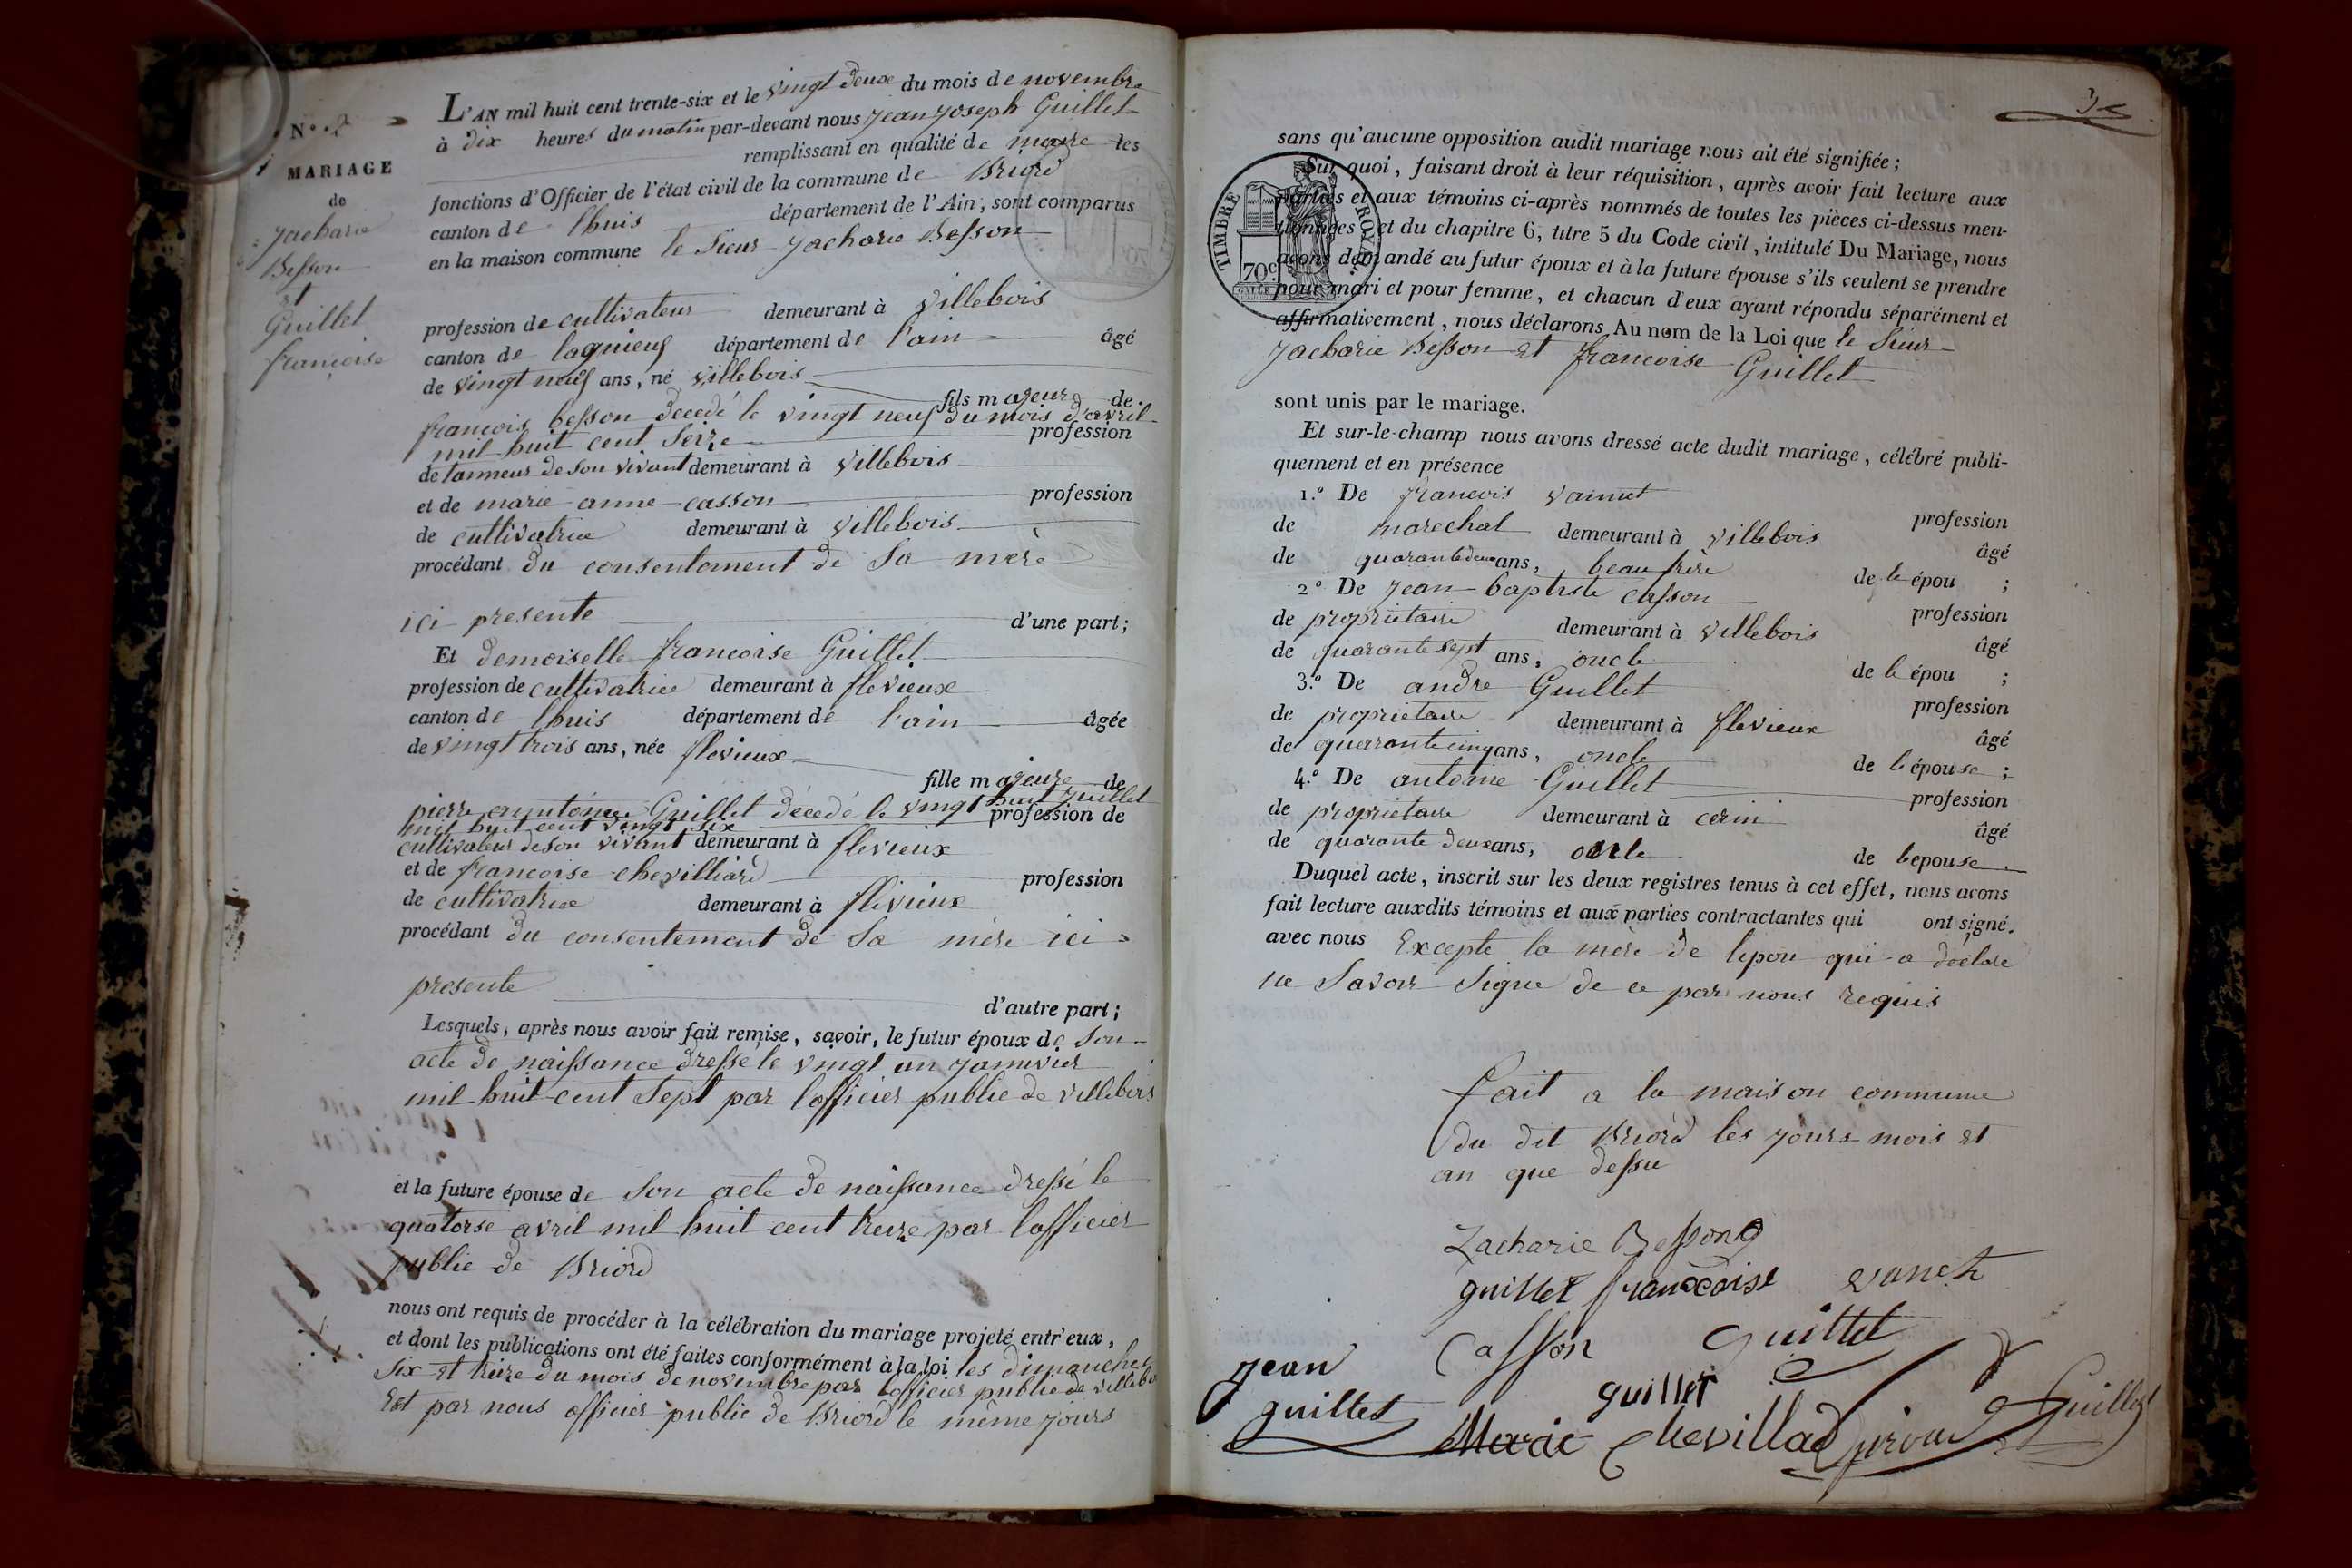 N.º 2
MARIAGE
de
Zacharie
Besson
et
Guillet
françoise
L'AN mil huit cent trente-six et le vingt deux du mois de novembre
à dix heures du matin par-devant nous jean joseph Guillet
remplissant en qualité de maire les
fonctions d'Officier de l'état civil de la commune de Briord
canton de lhuis département de l'Ain, sont comparus
en la maison commune le Sieur Zacharie Besson
profession de cultivateur demeurant à villebois
canton de lagnieu département de l'ain âgé
de vingt neuf ans, né villebois
fils majeur de
francois besson decedé le vingt neuf du mois d'avril
mil huit cent seize profession
de tanneur de son vivant demeurant à villebois
et de marie anne casson profession
de cultivatrice demeurant à villebois
procédant du consentement de sa mere
ici presente d'une part;
Et demoiselle francoise Guillet
profession de cultivatrice demeurant à flevieux
canton de lhuis département de l'ain âgée
de vingt trois ans, née flevieux
fille majeure de
pierre Guillet décedé le vingt huit juillet
mil huit cent vingt six profession de
cultivateur de son vivant demeurant à flevieux
et de francoise chevilliard profession
de cultivatrice demeurant à flevieux
procédant du consentement de sa mère ici
presente
d'autre part;
Lesquels, après nous avoir fait remise, savoir, le futur époux de son
acte de naissance dressé le vingt un janvier
mil huit cent sept par lofficier public de villebois
et la future épouse de son acte de naissance dressé le
quatorse avril mil huit cent treize par lofficier
public de Briord
nous ont requis de procéder à la célébration du mariage projeté entr'eux,
et dont les publications ont été faites conformément à la loi les dimanches
six et treize du mois de novembre par lofficier public de villebois
Et par nous officier public de Briord le même jours
sans qu'aucune opposition audit mariage nous ait été signifiée;
Sur quoi, faisant droit à leur réquisition, après avoir fait lecture aux
parties et aux témoins ci-après nommés de toutes les pièces ci-dessus men-
tionnées et du chapitre 6, titre 5 du Code civil, intitulé Du Mariage, nous
avons demandé au futur époux et à la future épouse s'ils veulent se prendre
pour mari et pour femme, et chacun d'eux ayant répondu séparément et
affirmativement, nous déclarons Au nom de la Loi que le Sieur
Zacharie Besson et francoise Guillet
TIMBRE ROYAL
70 c
sont unis par le mariage.
Et sur-le-champ nous avons dressé acte dudit mariage, célébré publi-
quement et en présence
1.º De francois vannet profession
de marechal demeurant à villebois âgé
de quarante deux ans, beau frère de le épou ;
2º De jean baptiste casson profession
de proprietaire demeurant à villebois âgé
de quarante sept ans, oncle de le épou ;
3.º De andre Guillet profession
de proprietaire demeurant à flevieux âgé
de quarante cinq ans, oncle de l'épouse ;
4.º De antoine Guillet profession
de proprietaire demeurant à cerin âgé
de quarante deux ans, oncle de lepouse
Duquel acte, inscrit sur les deux registres tenus à cet effet, nous avons
fait lecture auxdits témoins et aux parties contractantes qui ont signé.
avec nous Excepte la mère de lepou qui a declare
ne savoir signe de ce par nous requis
fait a la maison commune
du dit Briord les jours mois et
an que dessu
Zacharie Besson
guillet francoise vanet
Casson Guillet
jean guillet
guillet
Marie Chevillad Guillet